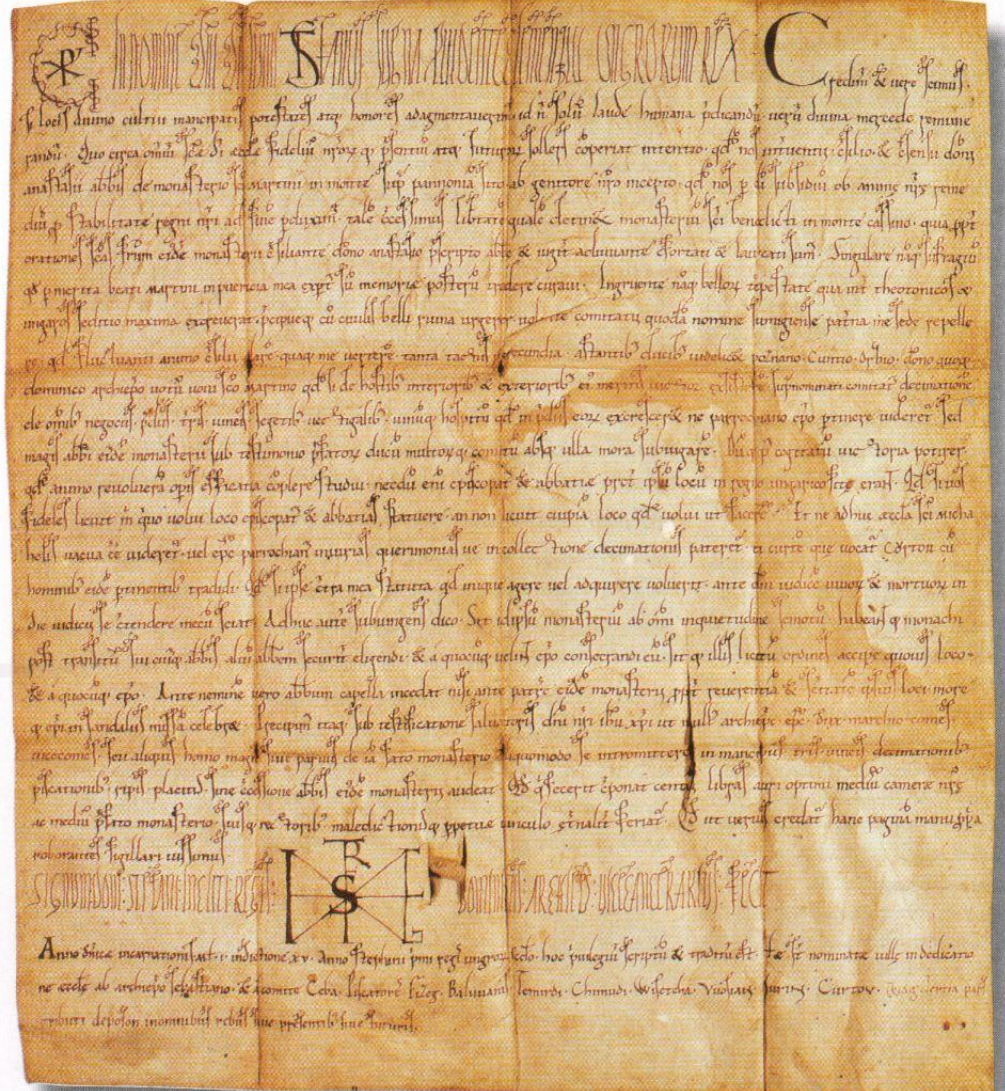 IN NOMINE DNI DI SUMMI STEPHANUS SUPERNA PROVIDENTE CLEMENTIA UNGRORUM REX Credimus & vere scimus.
si locis divino cultui mancipatis potestates atq; honores adaugmentaverim. id n solu laude humana pdicandu. veru divina mercede remune
randu. Quo circa omniu sce di eccle fideliu nroru q psentiu atq; futuroru sollers coperiat intentio. qd nos intventu csilio. & csensu domni
anastasii abbis de monasterio sci martini in monte sup pannonia sito ab genitore nro incepto. qd nos p di subsidiu ob anime nre reme
diu p stabilitate regni nri ad fine pduximus. tale ccessimus libtate quale detinet monasteriu sci benedicti in monte cassino. qua ppt
orationes scas frum eide monasterii csiliante domno anastasio pscripto abbe & iugit adiuvante cfortati & laureati sum. Singulare naq; suffragiu
qd p merita beati martini in puericia mea expt su memorie posteru tradere curavi. Ingruente naq; belloru tepestate qua int theotonicos &
ungaros seditio maxima excreverat. pcipueq; cu civilis belli ruina urgerer. volente comitatu quoda nomine sumigiense paterna me sede repelle
re. qd fluctuanti animo csilii dare. quaq; me vertere. tanta tactus verecundia. astantib ducib videlicet poznano. Cuntio. Orzio. domno quoq;
dominico archiepo votu vovi sco martino. qd si de hostib interiorib & exteriorib ei meritis victor existere. supnominati comitat decimatione
de omib negociis. pdiis. tris. vineis. segetib. vectigalib. vinuq; hospitu qd in pdiis eoru excresceret. ne parrochiano epo ptinere videret. sed
magis abbi eide monasterii sub testimonio pfatoru ducu multoruq; comitu absq; ulla mora subiugare. Duq; p cogitatu victoria potirer.
qd animo revolvera opis efficatia coplere studui. necdu eni epicopat & abbatie pret ipsu locu in regno ungarico site erant. Qd si vos
fideles licuit in quo volui loco epicopat & abbatias statuere. an non licuit cuipia loco qd volui ut facere. Et ne adhuc eccla sci micha
helis vacua ee videret. vel eps parrochian iniurias querimoniasve in collectione decimationis pateret. ei curte que vocat CORTOU cu
hominib eide ptinentib tradidi. Qd si ipse ctra mea statuta qd inique agere vel adquirere voluerit. ante dm iudice vivoru & mortuoru in
die iudicii se ctendere mecu sciat. Adhuc aute subiungens dico. Set id ipsu monasteriu ab omi inquietudine semotu. habeant q monachi
post transitu sui cuiq; abbis aliu abbem securit eligendi. & a quocuq; velint epo consecrandi eu. sit q illis licitu ordines accipe quovis loco
& a quocuq; epo. Ante nemine vero abbum capella incedat nisi ante patre eide monasterii. ppt reverentia & servato ipsius loci more
q epi in sandaliis missa celebret. Precipim itaq; sub testificatione salvatoris dni nri ihu xpi ut null archieps. eps. dux. marchio. comes.
vicecomes. seu aliquis homo magnus sive parvus de ia facto monasterio aliquomodo se intromittere in mancipiis. tris. vineis. decimationib.
piscationib. ripis. placitis. sine ccessione abbis eide monasterii audeat. Qd q fecerit cponat centu libras auri optimi mediu camere nre
ac mediu pfato monasterio. suisq; rectorib. maledictionisq; ppetue vinculo gnalit feriat. Et ut verius credat hanc pagina manu ppria
roborantes sigillari iussimus
SIGNUM DOMNI STEPHANI INCLITI REGIS. DOMINICUS ARCHIEPS. VICECANCELLARIUS. FECIT
Anno dnice incarnationis mill. i. indictione xv. Anno stephani primi regis ungroru scdo. hoc privilegiu scriptu & traditu est. Hec st nominate ville in dedicatio
ne eccle ab archiepo sebastiano. & a comite Ceba. Piscatores Fizeg. Balwuani. Temirdi. Chimudi. Wisetcha. Wuolian. Murin. Curtov.
tributi de poson in omnibus rebus sive presentib sive futuris.